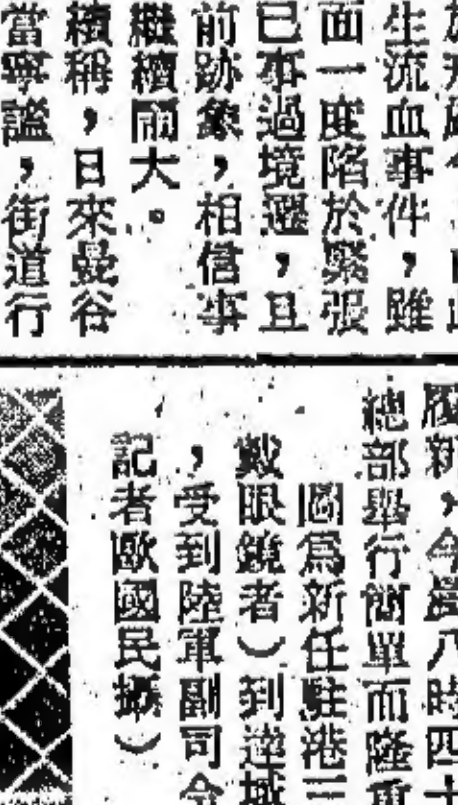 生流血事件，雖
面一度陷於緊張
已事過境遷，且
前跡象，相信事
繼續鬧大。
續稱，日來曼谷
當寧謐，街道行
履新，今晨八時四十
總部舉行簡單而隆重
圖爲新任駐港三
戴眼鏡者）到達域
，受到陸軍副司令
記者歐國民攝）